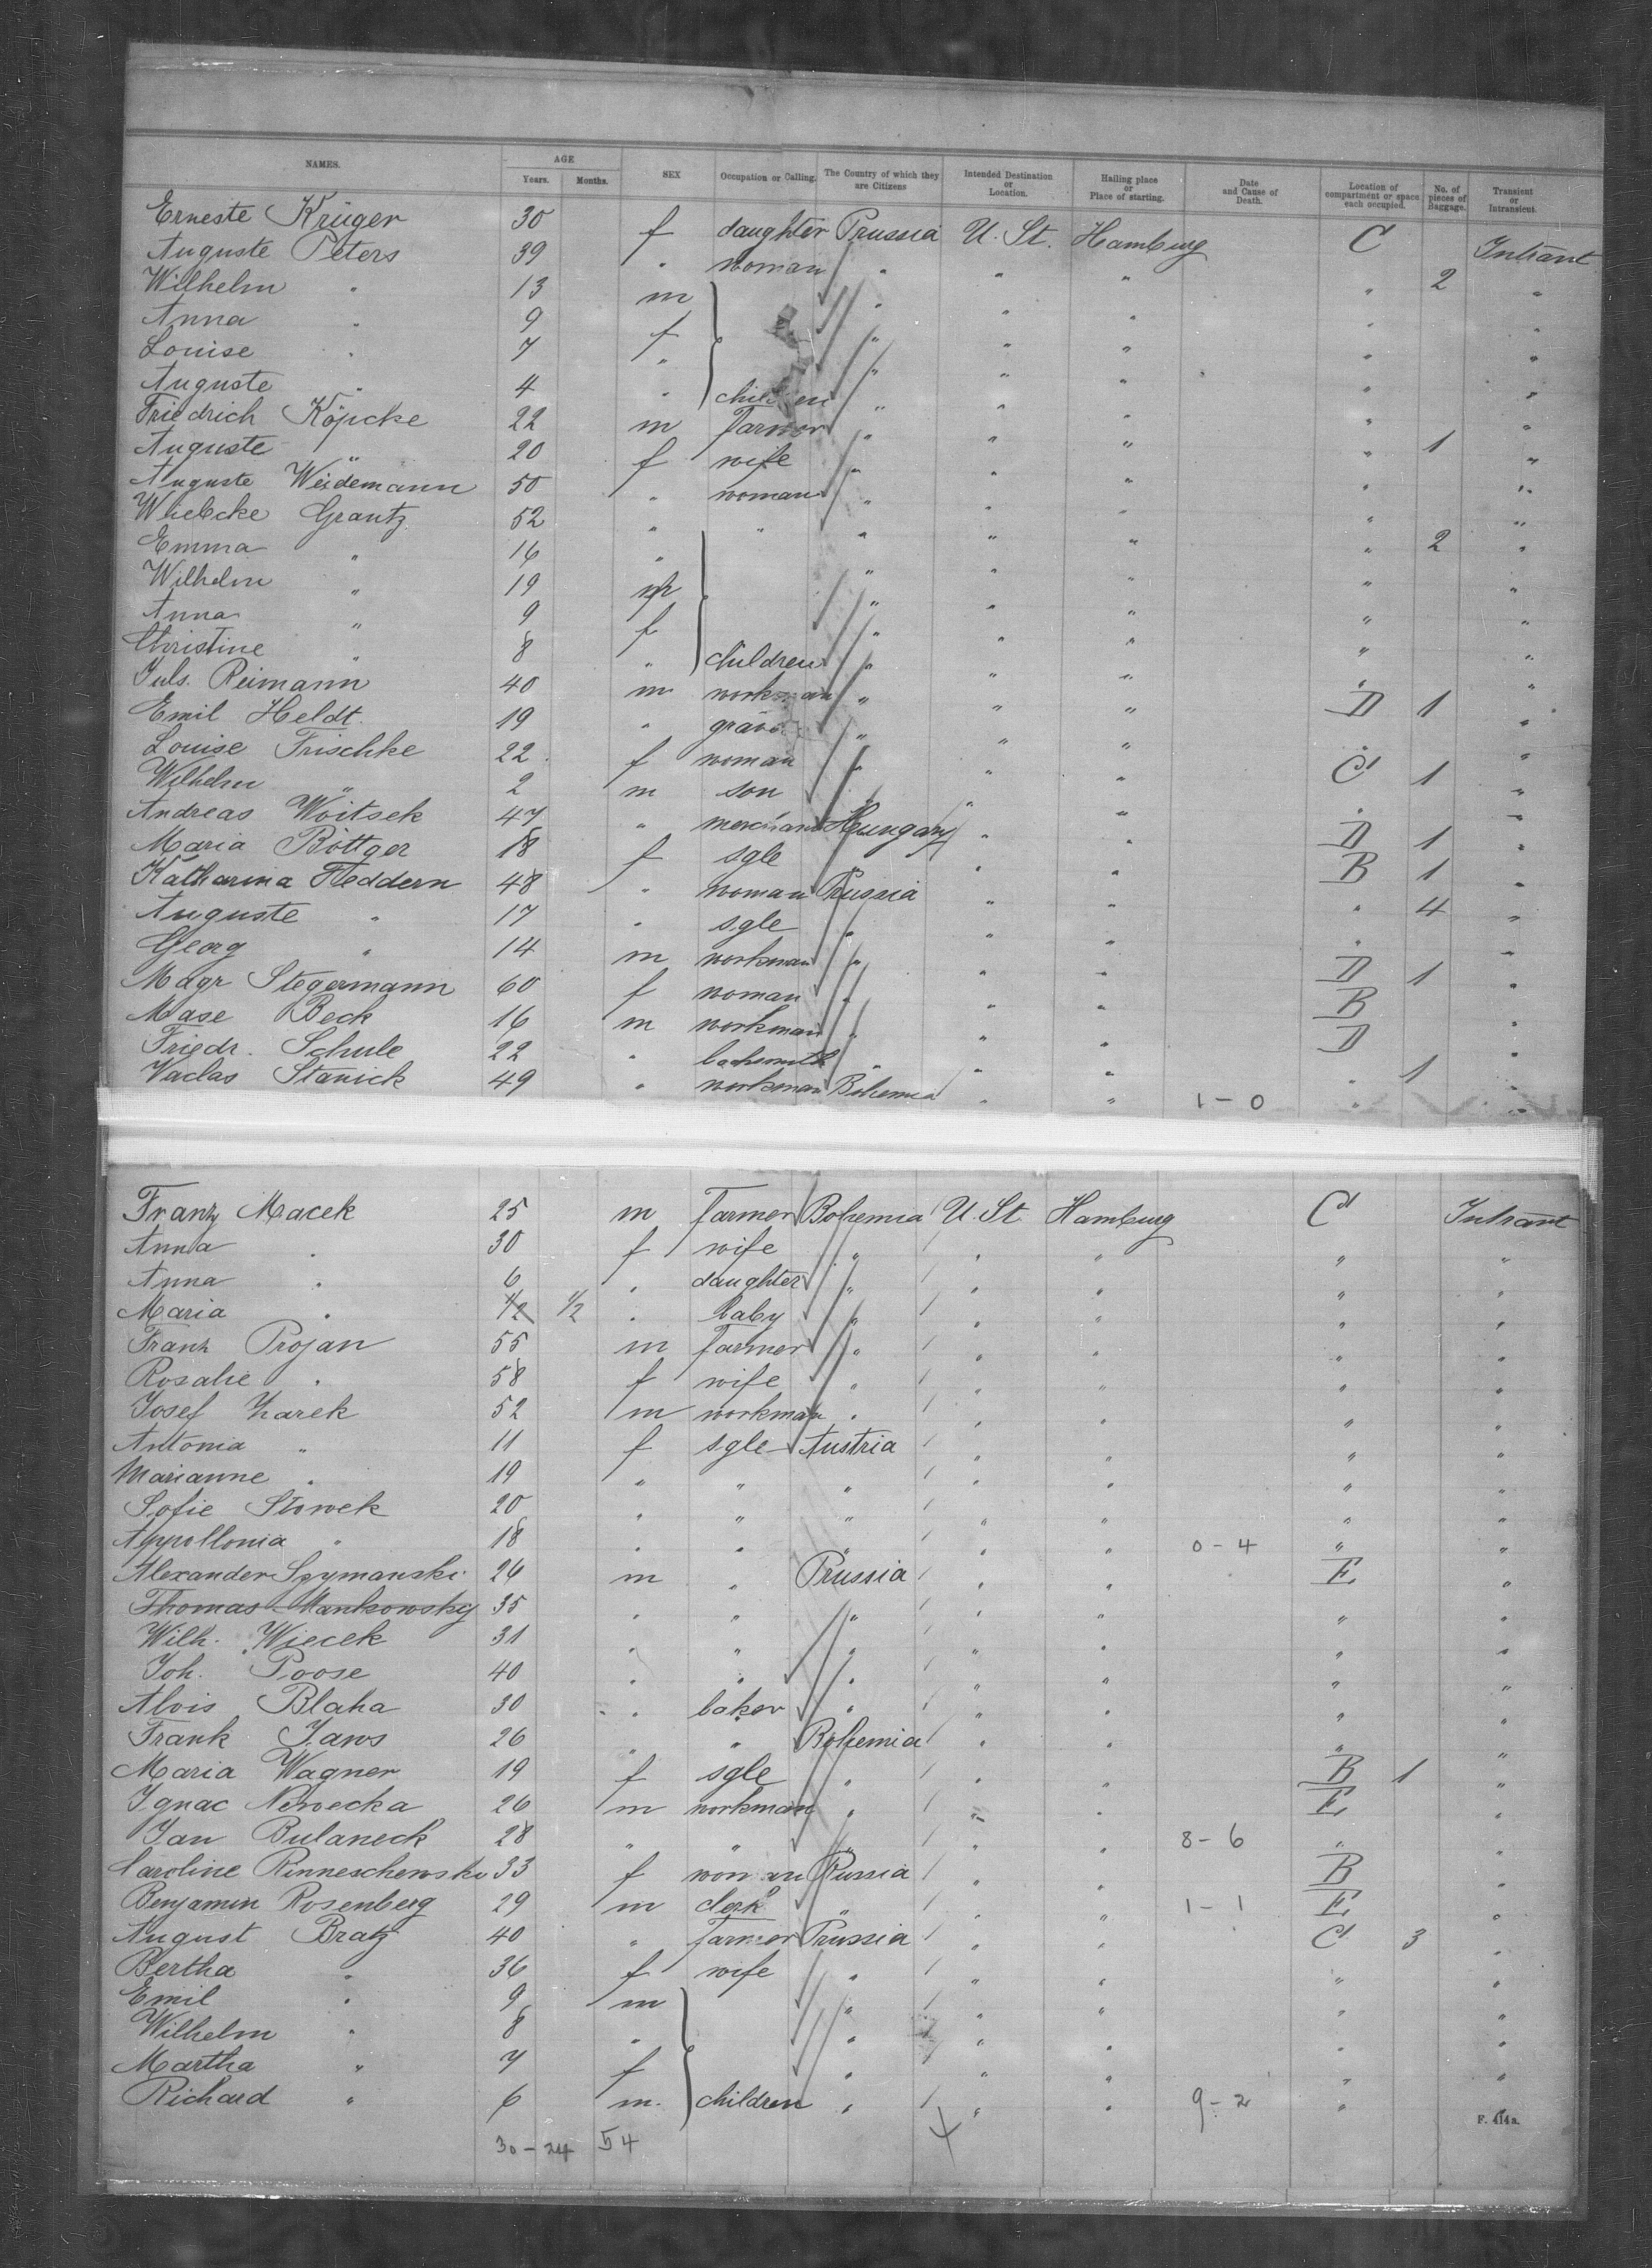 NAMES. AGE Years. Months. SEX Occupation or Calling. The Country of which they are Citizens Intended Destination or Location. Hailing place or Place of starting. Date and Cause of Death. Location of compartment or space each occupied. No. of pieces of Baggage. Transient or Intransient.
Erneste Krüger 30 f daughter Prussia U. St. Hamburg C Intrant
Auguste Peters 39 " woman " " " " 2 "
Wilhelm " 13 m " " " " "
Anna " 9 f " " " " "
Louise " 7 " " " " " "
Auguste " 4 " children " " " " "
Friedrich Köpcke 22 m Farmer " " " " 1 "
Auguste " 20 f wife " " " " "
Auguste Weidemann 50 " woman " " " " "
Wiebcke Grantz 52 " " " " " " 2 "
Emma " 16 " " " " " "
Wilhelm " 19 m " " " " "
Anna " 9 f " " " " "
Christine " 8 " children " " " " "
Juls. Reimann 40 m workman " " " D 1 "
Emil Heldt. 19 " " " " " "
Louise Frischke 22 f woman " " " C 1 "
Wilhelm " 2 m son " " " " "
Andreas Woitsek 47 " merchant Hungary " " D 1 "
Maria Böttger 18 f sgle " " B 1 "
Katharina Feddern 48 " woman Prussia " " " 4 "
Auguste " 17 " sgle " " " " "
Georg " 14 m workman " " " D 1 "
Magr Stegermann 60 f woman " " " B "
Mase Beck 16 m workman " " " D "
Friedr. Schule 22 " " " " " 1 "
Vaclas Stanick 49 " workman Bohemia " " 1 - 0 " "
Franz Macek 25 m Farmer Bohemia U. St Hamburg C Intrant
Anna " 30 f wife " " " " "
Anna " 6 " daughter " " " " "
Maria " 1/2 1/2 " baby " " " " "
Franz Projan 55 m Farmer " " " " "
Rosalie " 58 f wife " " " " "
Josef Zarek 52 m workman " " " " "
Antonia " 11 f sgle Austria " " " "
Marianne " 19 " " " " " " "
Sofie Slowek 20 " " " " " " "
Appollonia " 18 " " " " " 0 - 4 " "
Alexander Szymanski 26 m " Prussia " " E "
Thomas Mankowsky 35 " " " " " " "
Wilh. Wiecek 31 " " " " " " "
Joh. Poose 40 " " " " " " "
Alois Blaha 30 " baker " " " " "
Frank Jaws 26 " " Bohemia " " " "
Maria Wagner 19 f sgle " " " B 1 "
Ignac Newecka 26 m workman " " " E "
Jan Bulaneck 28 " " " " " 8 - 6 " "
Caroline Rinneschewski 33 f woman Russia " " B "
Benjamin Rosenberg 29 m clerk " " " 1 - 1 E "
August Bratz 40 " Farmer Prussia " " C 3 "
Bertha " 36 f wife " " " " "
Emil " 9 m " " " " "
Wilhelm " 8 " " " " " "
Martha " 7 f " " " " "
Richard " 6 m. children " " " 9 - 2 "
F. 414a.
30 - 24 54